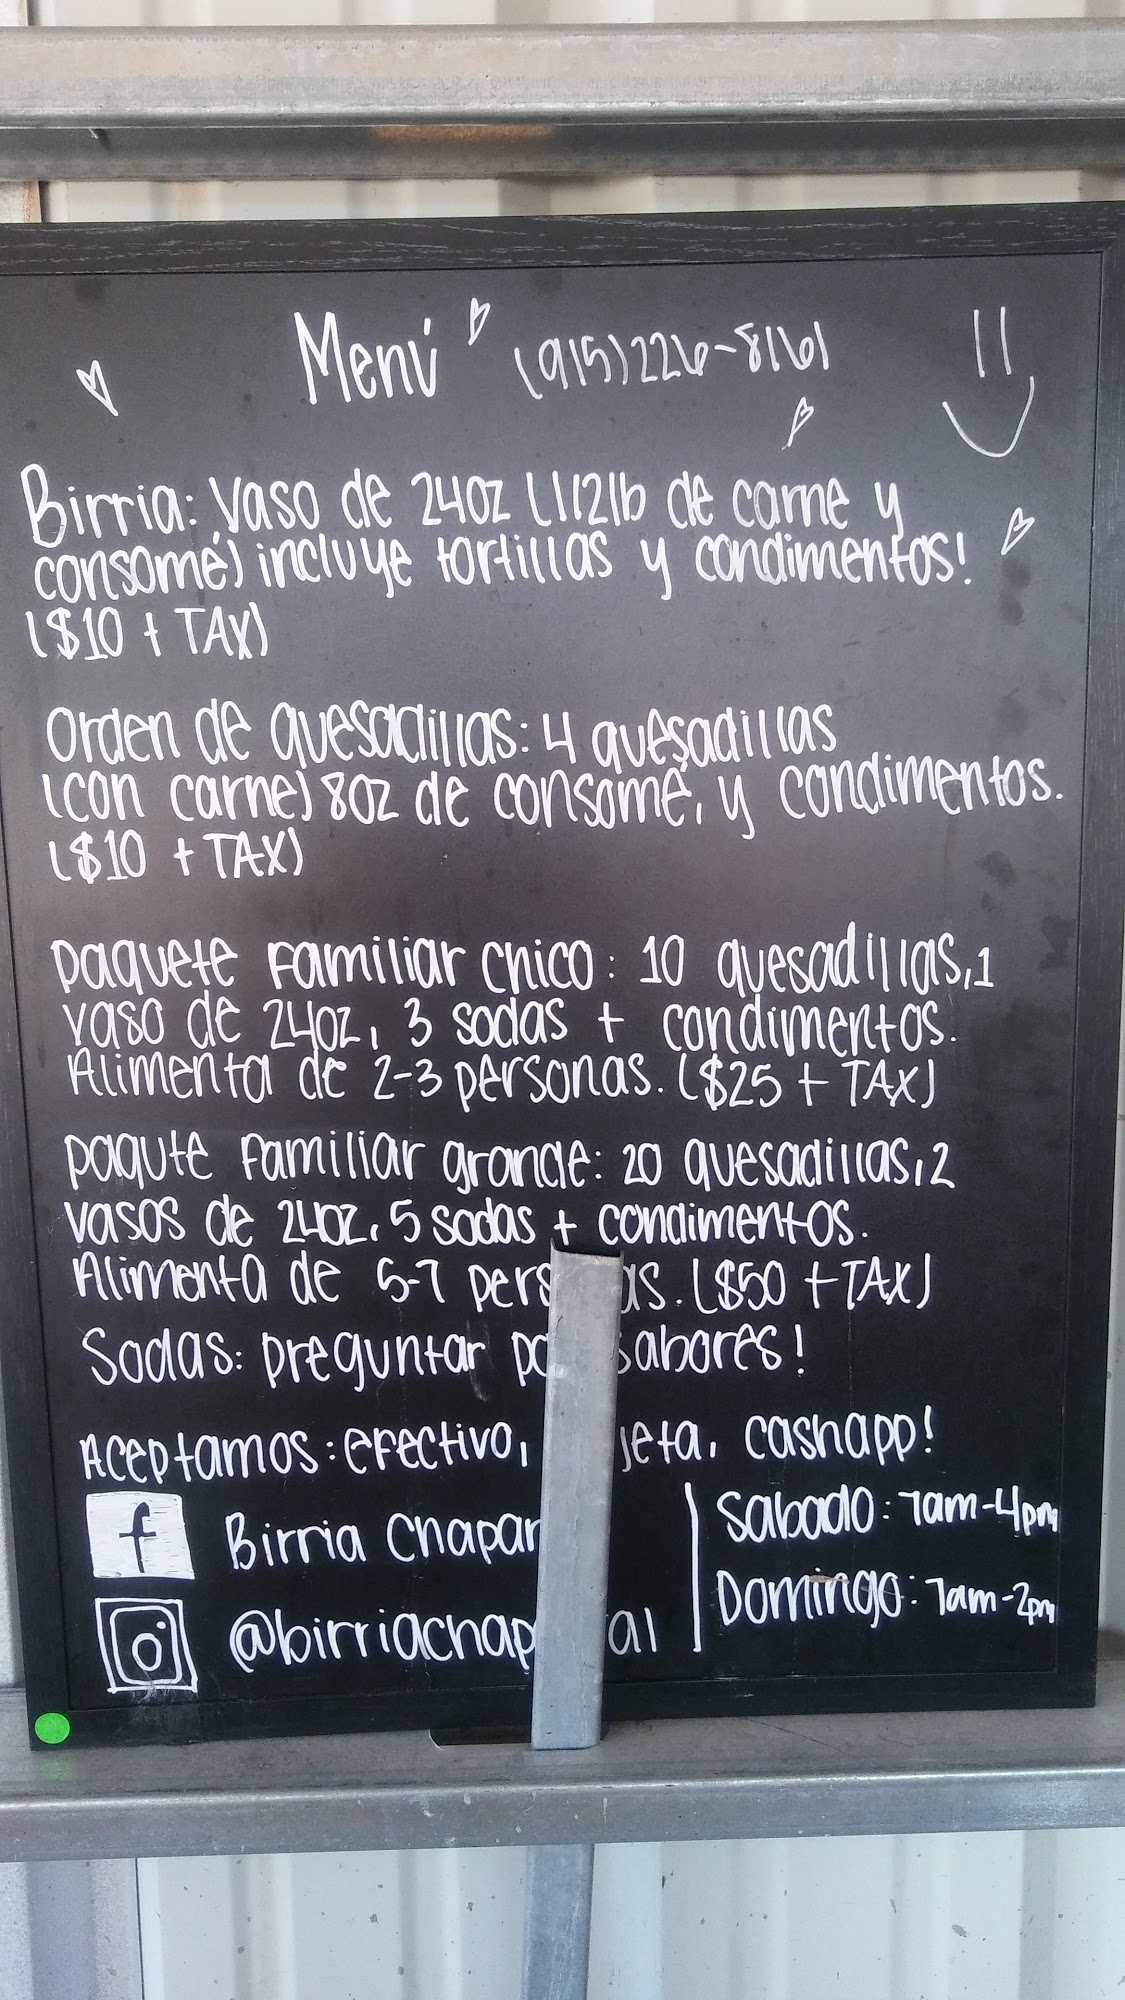 Menú (915)226-8161
Birria: Vaso de 24oz (1/2lb de carne y
consomé) incluye tortillas y condimentos!
($10 + TAX)
Orden de quesadillas: 4 quesadillas
(con carne) 8oz de consomé, y condimentos.
($10 + TAX)
Paquete Familiar Chico: 10 quesadillas, 1
vaso de 24oz, 3 sodas + condimentos.
Alimenta de 2-3 personas. ($25 + TAX)
Paqute Familiar grande: 20 quesadillas, 2
vasos de 24oz, 5 sodas + condimentos.
Alimenta de 5-7 pers as. ($50 + TAX)
Sodas: preguntar sabores!
Aceptamos: efectivo, jeta, cashapp!
f Birria Chapar
@birriachap al
Sabado: 7am-4pm
Domingo: 7am-2pm